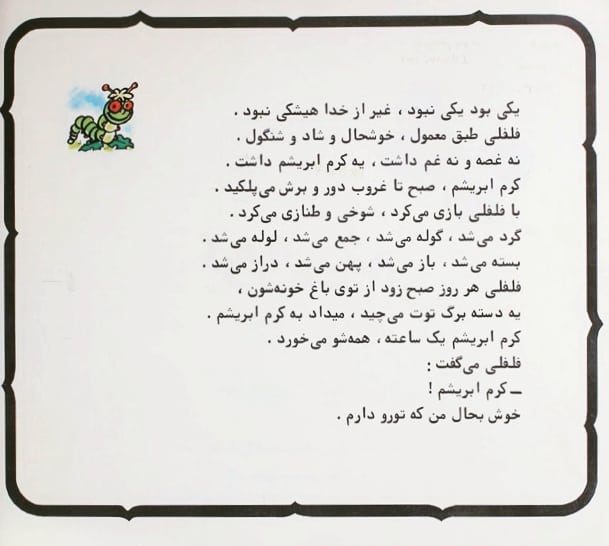 یکی بود یکی نبود ، غیر از خدا هیشکی نبود .
فلفلی طبق معمول ، خوشحال و شاد و شنگول .
نه غصه و نه غم داشت ، یه کرم ابریشم داشت .
کرم ابریشم ، صبح تا غروب دور و برش می‌پلکید .
با فلفلی بازی می‌کرد ، شوخی و طنازی می‌کرد .
گرد می‌شد ، گوله می‌شد ، جمع می‌شد ، لوله می‌شد .
بسته می‌شد ، باز می‌شد ، پهن می‌شد ، دراز می‌شد .
فلفلی هر روز صبح زود از توی باغ خونه‌شون ،
یه دسته برگ توت می‌چید ، میداد به کرم ابریشم .
کرم ابریشم یک ساعته ، همه‌شو می‌خورد .
فلفلی می‌گفت :
ــ کرم ابریشم !
خوش بحال من که تورو دارم .